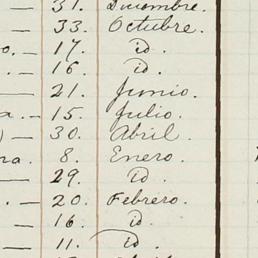 — 31. Diciembre.
— 33. Octubre.
o. — 17. id.
. — 16. id.
— 21. Junio.
a. — 15. Julio.
) — 30. Abril.
ra. 8. Enero.
— 29. id.
. — 20. Febrero.
— 16. id.
— 11. id.